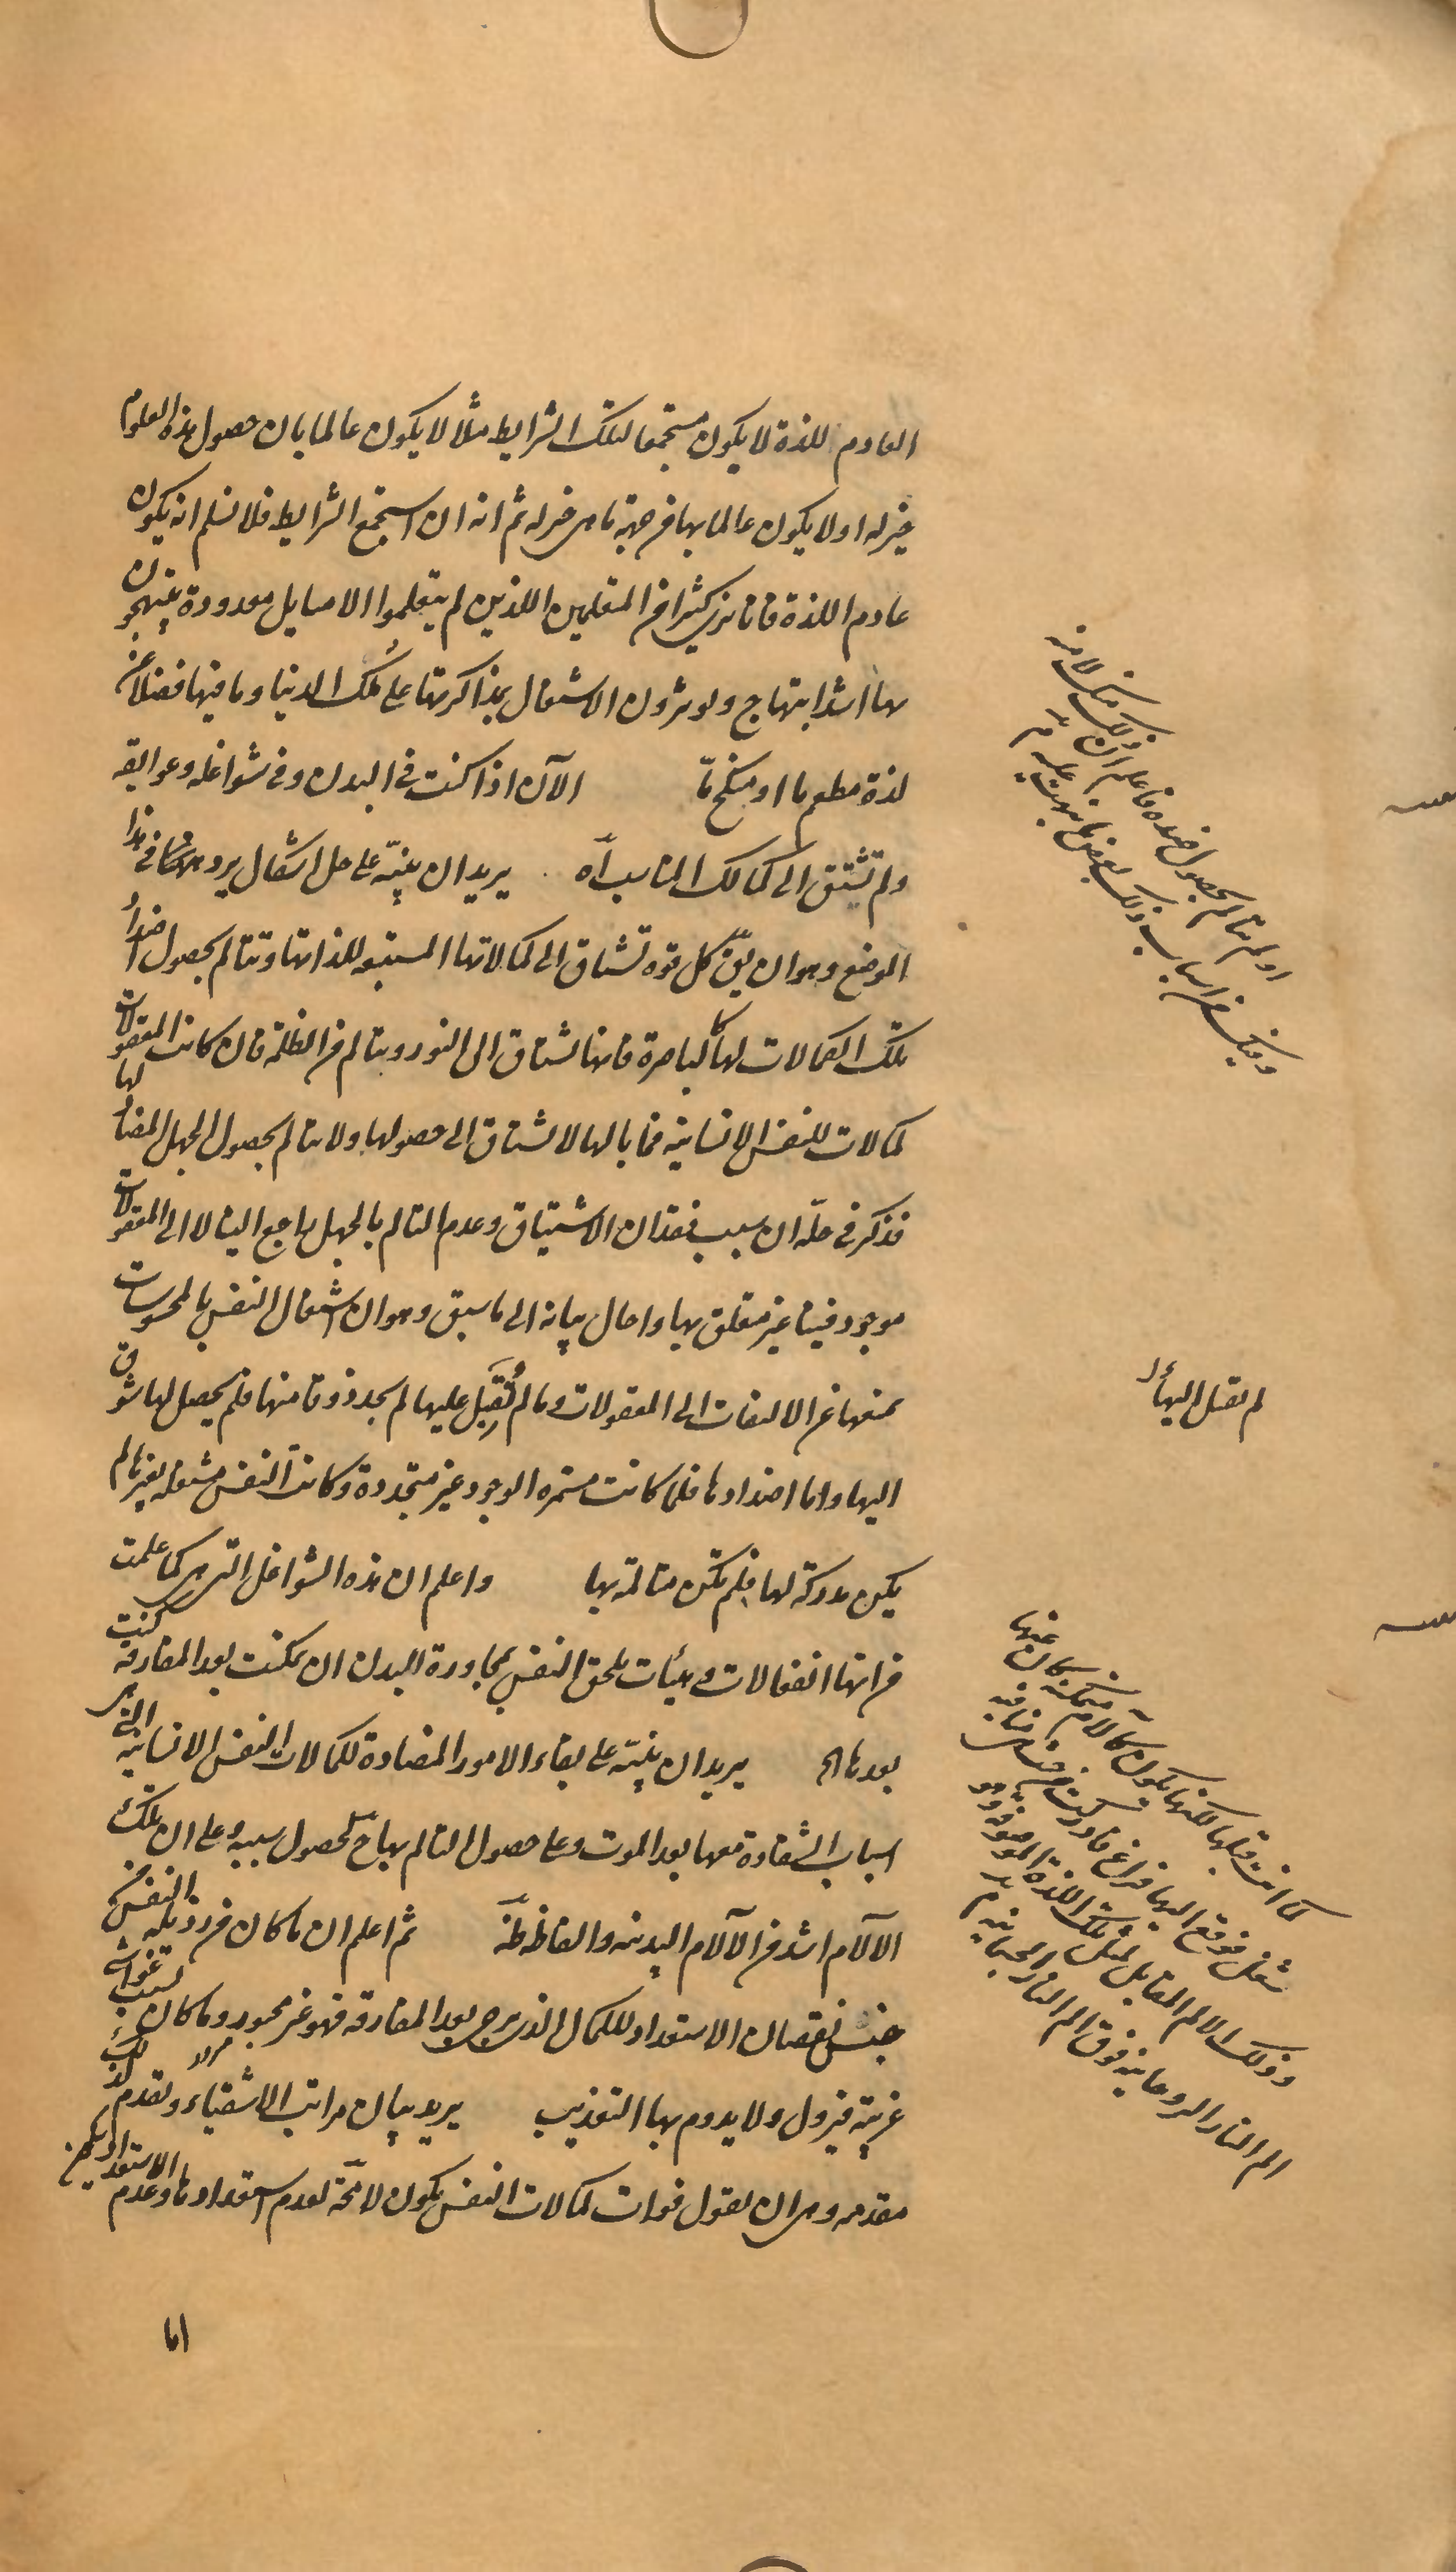 العادم للذة لا يكون مستجمعا لتلك الشرايط مثلا لا يكون عالما بان حصول هذه العلوم
خير له او لا يكون عالما بها من جهة ما هى خير له ثم انه ان استجمع الشرايط فلا نسلم انه يكون
عادم اللذة فانا نرى كثيرا من المتعلمين اللذين لم يتعلموا الا مسايل معدودة يبتهجون
بها اشد ابتهاج ويوثرون الاشتغال بمذاكرتها على مُلك الدنيا وما فيها فضلا عن
لذة مطعم ما او منكح مّا الآن اذا كنت فى البدن وفى شواغله وعوايقه
ولم تشتق الى كمالك المناسب اه يريد ان ينبّه على حل اشكال يرد ههنا فى هذا
الموضع وهو ان يقّ كل قوة تشتاق الى كمالاتها المستتبعه للذاتها وتتالم بحصول اضداد
تلك الكمالات لها كالباصرة فانها تشتاق الى النور ويتالم من الظلمة فان كانت المعقولات
كمالات للنفس الانسانية فما بالها لا تشتاق الى حصولها ولا تتالم بحصول الجهل المضاد لها
فذكر فى حلّه ان سبب فقدان الاشتياق وعدم التالم بالجهل راجع الينا لا الى المعقولات
موجود فينا غير متعلق بها واحال بيانه الى ما سبق وهو ان اشتغال النفس بالمحسوسات
يمنعها عن الالتفات الى المعقولات وما لم تُقبِل عليها لم يجد ذوقا منها فلم يحصل لها شوق
اليها واما اضدادها فلما كانت مستمره الوجود غير متجددة وكانت النفس مشتغله بغيرها لم
يكن مدركة لها فلم تكن متالمة بها واعلم ان هذه الشواغل التى هى كما علمت
من انها انفعالات وهيئات تلحق النفس بمجاورة البدن ان تمكنت بعد المفارقه كنت
بعدها الخ يريد ان ينبّه على بقاء الامور المضادة للكمالات النفس الانسانيه التى هى
اسباب الشقاوة معها بعد الموت وعلى حصول التالم بها ح لحصول سببه وعلى ان تلك
الآلام اشد من الآلام البدنيه والفاظه ظّه ثم اعلم ان ما كان من رذيلة النفس
من جنس نقصان الاستعداد للكمال الذى يرجى بعد المفارقه فهو غير مجبور وما كان بسبب غواش
غريبة فيزول ولا يدوم بها التعذيب يريد بيان مراتب الاشقياء ولقدم لذلك
مقدمه وهى ان نقول فوات كمالات النفس يكون لا محّة لعدم استعدادها وعدم الاستعداد يكون
اما
او لم تتالم بحصول ضده فاعلم ان ذلك منك لا منه
وفيك من اسباب ذلك بعض ما نبهت عليه م
لم تقبل اليها
كما انت قبلها لكنها يكون كآلام متمكنة كان عنها
شغل فوقع اليها فراغ فادركت من حيث هى منافيه
وذلك الالم المقابل لمثل تلك اللذة الموصوفة وهو
الم النار الروحانية فوق الم النار الجسمانيه م